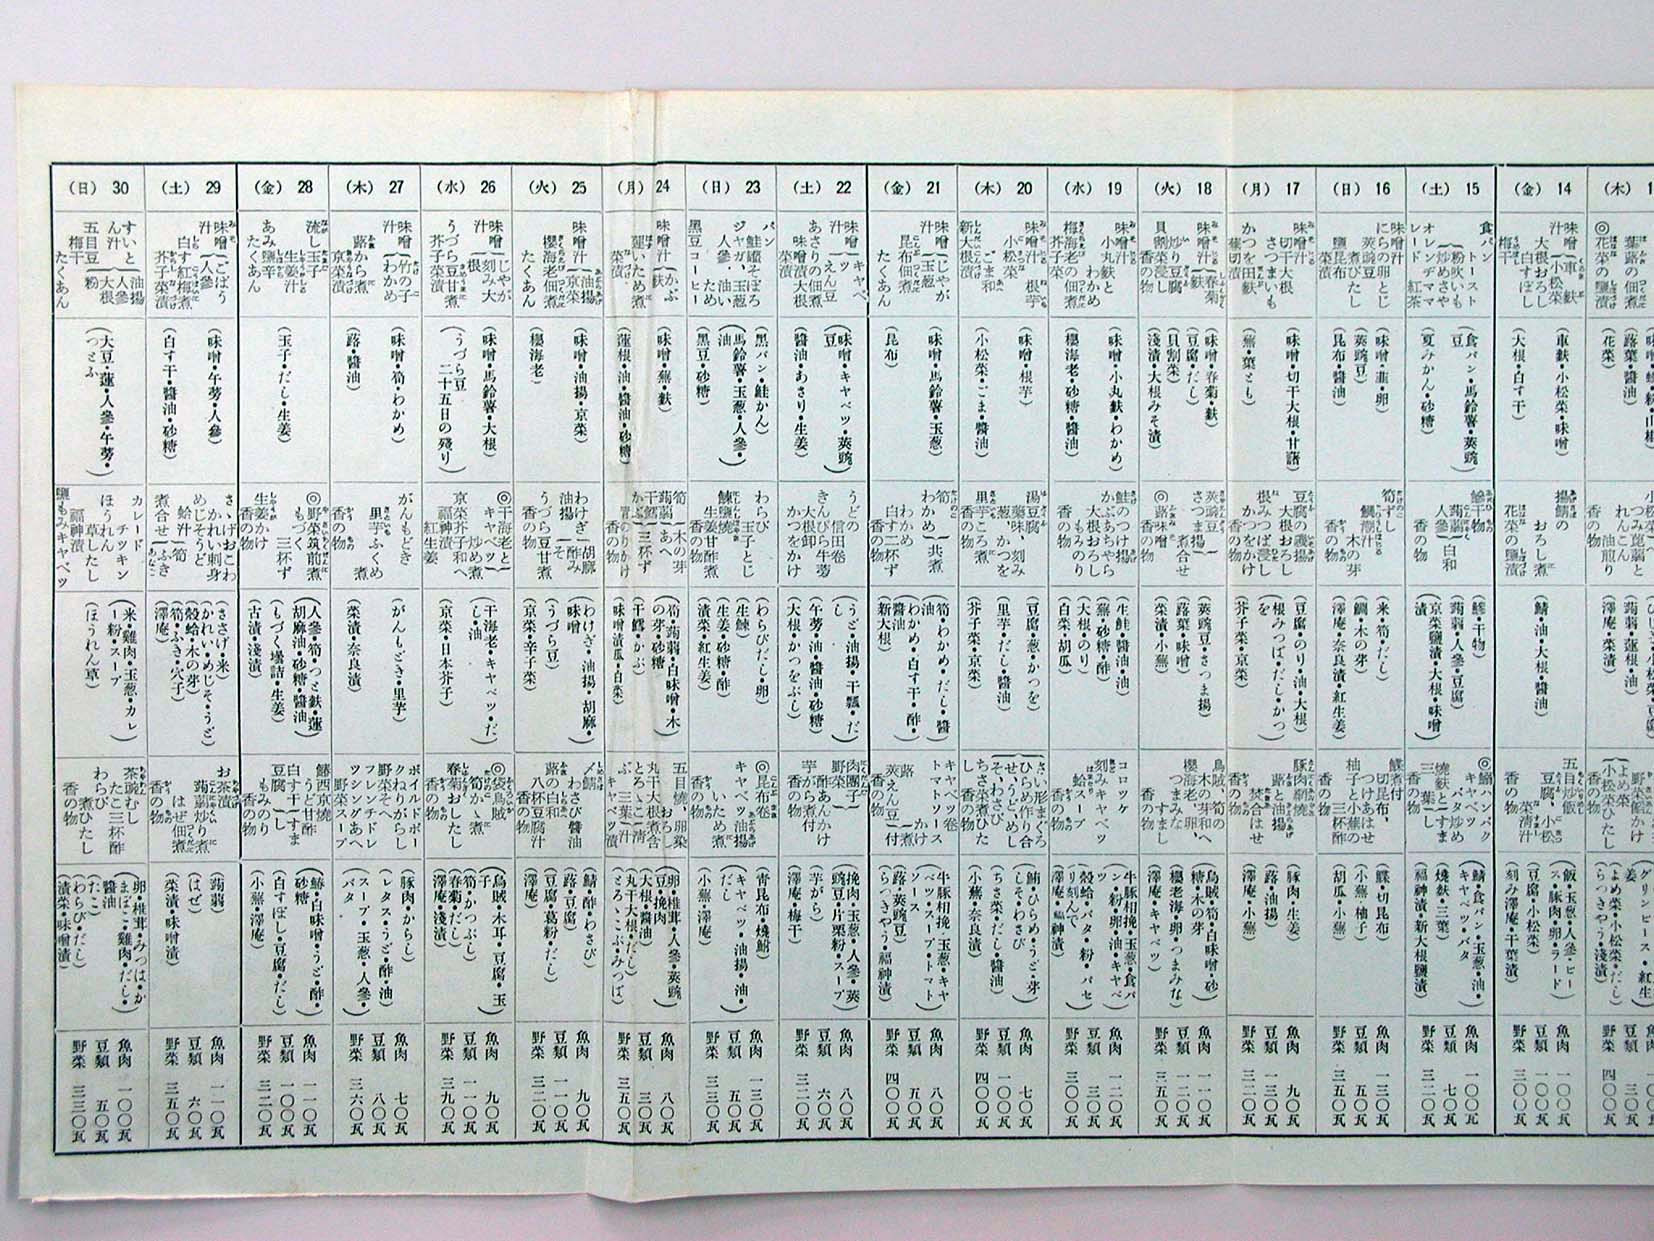 (木) 1
蕗葉の佃煮
◎花菜の鹽漬
(花菜)
小松菜の香の物
つみ菎蒻と
れんこん
の油煎り
香の物
(蒟蒻・蓮根・油)
(澤庵・菜漬)
よめ菜
小松菜ひたし
香の物
グリンピース・紅生
姜
(よめ菜・小松菜・だし)
(らつきやう・淺漬)
(金) 14
味噌汁
車麩
小松菜
大根おろし
白すぼし
梅干
(車麩・小松菜・味噌)
(大根・白す干)
揚鯖の
おろし煮
花菜の鹽漬
(鯖・油・大根・醬油)
五目炒飯
豆腐、小松
菜清汁
香の物
(飯・玉葱・人參・ビー
ス・豚肉・卵・ラード)
(豆腐・小松菜)
(刻み澤庵・干葉漬)
魚肉 一〇〇瓦
豆類 一〇〇瓦
野菜 三〇〇瓦
(土) 15
食パン トースト
粉吹いも
炒めさや
オレンヂママ
レード 紅茶
(食パン・馬鈴薯・莢豌
豆)
(夏みかん・砂糖)
鯵干物
蒟蒻
人參
白和
香の物
(鯵・干物)
(蒟蒻・人參・豆腐)
(京菜鹽漬・大根・味噌
漬)
◎鰯ハンバク
キャベツ
バタ炒め
燒麩とこすま
三葉 し
香の物
(鯖・食パン・玉葱・油・
キャベツ・バタ)
(燒麩・三葉)
(福神漬・新大根鹽漬)
魚肉 一〇〇瓦
豆類 七〇瓦
野菜 三二〇瓦
(日) 16
味噌汁
にらの卵とじ
莢豌豆
煮びたし
鹽昆布
(味噌・韮・卵)
(莢豌豆)
(昆布・醬油)
筍ずし
鯛潮汁
木の芽
香の物
(米・筍・だし)
(鯛・木の芽)
(澤庵・奈良漬・紅生姜)
鰈煮付
切昆布、
つけあはせ
柚子と小蕪の
三杯酢
香の物
(鰈・切昆布)
(小蕪・柚子)
(胡瓜・澤庵)
魚肉 一三〇瓦
豆類 五〇瓦
野菜 三五〇瓦
(月) 17
味噌汁
切干大根
さつまいも
かつを田麩
蕪切漬
(味噌・切干大根・甘藷)
(蕪・葉とも)
豆腐の磯揚
大根おろし
根みつば浸し
かつをかけ
香の物
(豆腐・のり・油・大根)
(根みつば・だし・かつ
を)
(芥子菜・京菜)
豚肉鹽燒
蕗・油揚
焚合はせ
香の物
(豚肉・生姜)
(蕗・油揚)
(澤庵・小蕪)
魚肉 九〇瓦
豆類 一三〇瓦
野菜 三二〇瓦
(火) 18
味噌汁
春菊
麩
炒り豆腐
貝割菜浸し
香の物
(味噌・春菊・麩)
(豆腐・だし)
(貝割菜)
(淺漬・大根みそ漬)
莢豌豆
さつま揚
煮合せ
◎蕗味噌
香の物
(莢豌豆・さつま揚)
(蕗葉・味噌)
(菜漬・小蕪)
烏賊、筍の
木の芽和へ
櫻海老、卵、
つまみな
すまし
香の物
(烏賊・筍・白味噌・砂
糖・木の芽)
(櫻海老・卵・つまみな)
(澤庵・キャベツ)
魚肉 一一〇瓦
豆類 一二〇瓦
野菜 三五〇瓦
(水) 19
味噌汁
小丸麩と
わかめ
梅海老の佃煮
芥子菜漬
(味噌・小丸麩・わかめ)
(櫻海老・砂糖・醬油)
鮭のつけ揚
かぶちやら
大根おろし
もみのり
香の物
(生鮭・醬油・油)
(蕪・砂糖・酢)
(大根・のり)
(白菜・胡瓜)
コロッケ
刻みキャベツ
蛤スープ
香の物
(牛豚相挽・玉葱・食パ
ン・粉・卵・油・キャベ
ツ)
(殻蛤・バタ・粉・パセ
リ刻んで)
(澤庵・福神漬)
魚肉 一二〇瓦
豆類 三〇瓦
野菜 三〇〇瓦
(木) 20
味噌汁
根芋
小松菜、
ごま和
新大根漬
(味噌・根芋)
(小松菜・ごま・醬油)
湯豆腐
藥味、刻み
葱、かつを
里芋ころ煮
香の物
(豆腐・葱・かつを)
(里芋・だし・醬油)
(芥子菜・京菜)
さい形まぐろ
ひらめ作り合
せ、うど、めし
そ、わさび
ちさ菜煮びた
し
香の物
(鮪・ひらめ・うど・芽
じそ・わさび)
(ちさ菜・だし・醬油)
(小蕪・奈良漬)
魚肉 七〇瓦
豆類 一〇〇瓦
野菜 四〇〇瓦
(金) 21
味噌汁
じやが
玉葱
昆布佃煮
たくあん
(味噌・馬鈴薯・玉葱)
(昆布)
筍
わかめ
共煮
わかめ
白す二杯ず
香の物
(筍・わかめ・だし・醬
油)
(わかめ・白す干・酢・
醬油)
(新大根)
キャベツ卷
トマトソース
かけ
蕗
莢えん豆
煮付
香の物
(牛豚相挽・玉葱・キャ
ベツ・スープ・トマト
ソース)
(蕗・莢豌豆)
(らつきやう・福神漬)
魚肉 八〇瓦
豆類 五〇瓦
野菜 四〇〇瓦
(土) 22
味噌汁
キャベ
ツ
えん豆
あさりの佃煮
味噌漬大根
菜漬
(味噌・キャベツ・莢豌
豆)
(醬油・あさり・生姜)
うどの信田卷
きんぴら牛蒡
大根卸
かつをかけ
香の物
(うど・油揚・干瓢・だ
し)
(午蒡・油・醬油・砂糖)
(大根・かつをぶし)
肉團子
野菜
酢あんかけ
芋がら煮付
香の物
(挽肉・玉葱・人參・莢
豌豆・片栗粉・スープ)
(芋がら)
(澤庵・梅干)
魚肉 八〇瓦
豆類 六〇瓦
野菜 三二〇瓦
(日) 23
パン
鮭罐そぼろ
ジャガ、玉葱
人參、油い
ため
黑豆コーヒー
(黑パン・鮭かん)
(馬鈴薯・玉葱・人參・
油)
(黑豆・砂糖)
わらび
玉子とじ
鰊鹽燒
生姜甘酢煮
香の物
(わらびだし・卵)
(生鰊)
(生姜・砂糖・酢)
(漬菜・紅生姜)
◎昆布卷
キャベツ油揚
いため煮
香の物
(靑昆布・燒鮒)
(キャベツ・油揚・油・
だし)
(小蕪・澤庵)
魚肉 一三〇瓦
豆類 五〇瓦
野菜 三三〇瓦
(月) 24
味噌汁
かぶ
麩
蓮いため煮
京菜漬
(味噌・蕪・麩)
(蓮根・油・醬油・砂糖)
筍
蒟蒻
木の芽
あへ
干鱈
かぶ
三杯ず
香の物
(筍・蒟蒻・白味噌・木
の芽・砂糖)
(干鱈・かぶ)
(味噌漬瓜・白菜)
五目燒、卵染
おろし
丸干大根煮含
とろゝこ淸
ぶ、三葉 汁
キャベツ漬
(卵・椎茸・人參・莢豌
豆・挽肉)
(大根・醬油)
(丸干大根・だし)
(とろゝこぶ・みつば)
魚肉 八〇瓦
豆類 三〇瓦
野菜 三五〇瓦
(火) 25
味噌汁
油揚
京菜
櫻海老佃煮
たくあん
(味噌・油揚・京菜)
(櫻海老)
わけぎ
油揚
胡麻
酢み
そ
うづら豆甘煮
香の物
(わけぎ・油揚・胡麻・
味噌)
(うづら豆)
(京菜・辛子菜)
〆鯖
わさび醬油
蕗の白和
八杯豆腐汁
香の物
(鯖・酢・わさび)
(蕗・豆腐)
(豆腐・葛粉・だし)
(澤庵)
魚肉 九〇瓦
豆類 一一〇瓦
野菜 三二〇瓦
(水) 26
味噌汁
じやが
刻み大
根
うづら豆甘煮
芥子菜漬
(味噌・馬鈴薯・大根)
(うづら豆 二十五日の殘り)
◎干海老と
キャベツ
炒め煮
京菜芥子和へ
福神漬
紅生姜
(干海老・キャベツ・だ
し・油)
(京菜・日本芥子)
◎袋烏賊
筍かか煮
春菊おしたし
香の物
(烏賊・木耳・豆腐・玉
子)
(筍・かつぶし)
(春菊・だし)
(澤庵・淺漬)
魚肉 九〇瓦
豆類 一一〇瓦
野菜 三九〇瓦
(木) 27
味噌汁
竹の子
わかめ
蕗から煮
京菜漬
(味噌・筍・わかめ)
(蕗・醬油)
がんもどき
里芋ふくめ
煮
香の物
(がんもどき・里芋)
(菜漬・奈良漬)
ボイルドポー
クねりがらし
野菜そへ
フレンチドレ
ツシングあへ
野菜スープ
(豚肉・からし)
(レタス・うど・酢・油)
(スープ・玉葱・人參・
バタ)
魚肉 七〇瓦
豆類 八〇瓦
野菜 三六〇瓦
(金) 28
流し玉子
生姜汁
あみ鹽辛
たくあん
(玉子・だし・生姜)
◎野菜筑前煮
もづく
三杯ず
生姜かけ
香の物
(人參・筍・つと麩・蓮
胡麻油・砂糖・醬油)
(もづく・壜詰・生姜)
(古漬・淺漬)
鰆西京燒
うど甘酢
白す干
豆腐
すま
し
もみのり
香の物
(鰆・白味噌・うど・酢・
砂糖)
(白すぼし・豆腐・だし)
(小蕪・澤庵)
魚肉 一一〇瓦
豆類 一〇〇瓦
野菜 三二〇瓦
(土) 29
味噌汁
ごぼう
人參
白す紅梅煮
芥子菜漬
(味噌・午蒡・人參)
(白す干・醬油・砂糖)
さゝげおこわ
かれい刺身
めじそうど
蛤汁
煮合せ
筍
ふき
あなご
(ささげ・米)
(かれい・めじそ・うど)
(殻蛤・木の芽)
(筍・ふき・穴子)
(澤庵)
お茶漬
蒟蒻炒り煮
はぜ佃煮
香の物
(蒟蒻)
(はぜ)
(菜漬・味噌漬)
魚肉 一一〇瓦
豆類 六〇瓦
野菜 三五〇瓦
(日) 30
すいと
ん汁
油揚
人參
大根
五目豆
粉
梅干
たくあん
(大豆・蓮・人參・午蒡・
つとふ)
カレード
チツキン
ほうれん
草したし
福神漬
鹽もみキャベツ
(米・雞肉・玉葱・カレ
ー粉・スープ)
(ほうれん草)
茶碗むし
たこ三杯酢
わらび
煮びたし
香の物
(卵・椎茸・みつば・か
まぼこ・雞肉・だし・
醬油)
(たこ)
(わらび・だし)
(漬菜・味噌漬)
魚肉 一〇〇瓦
豆類 五〇瓦
野菜 三三〇瓦